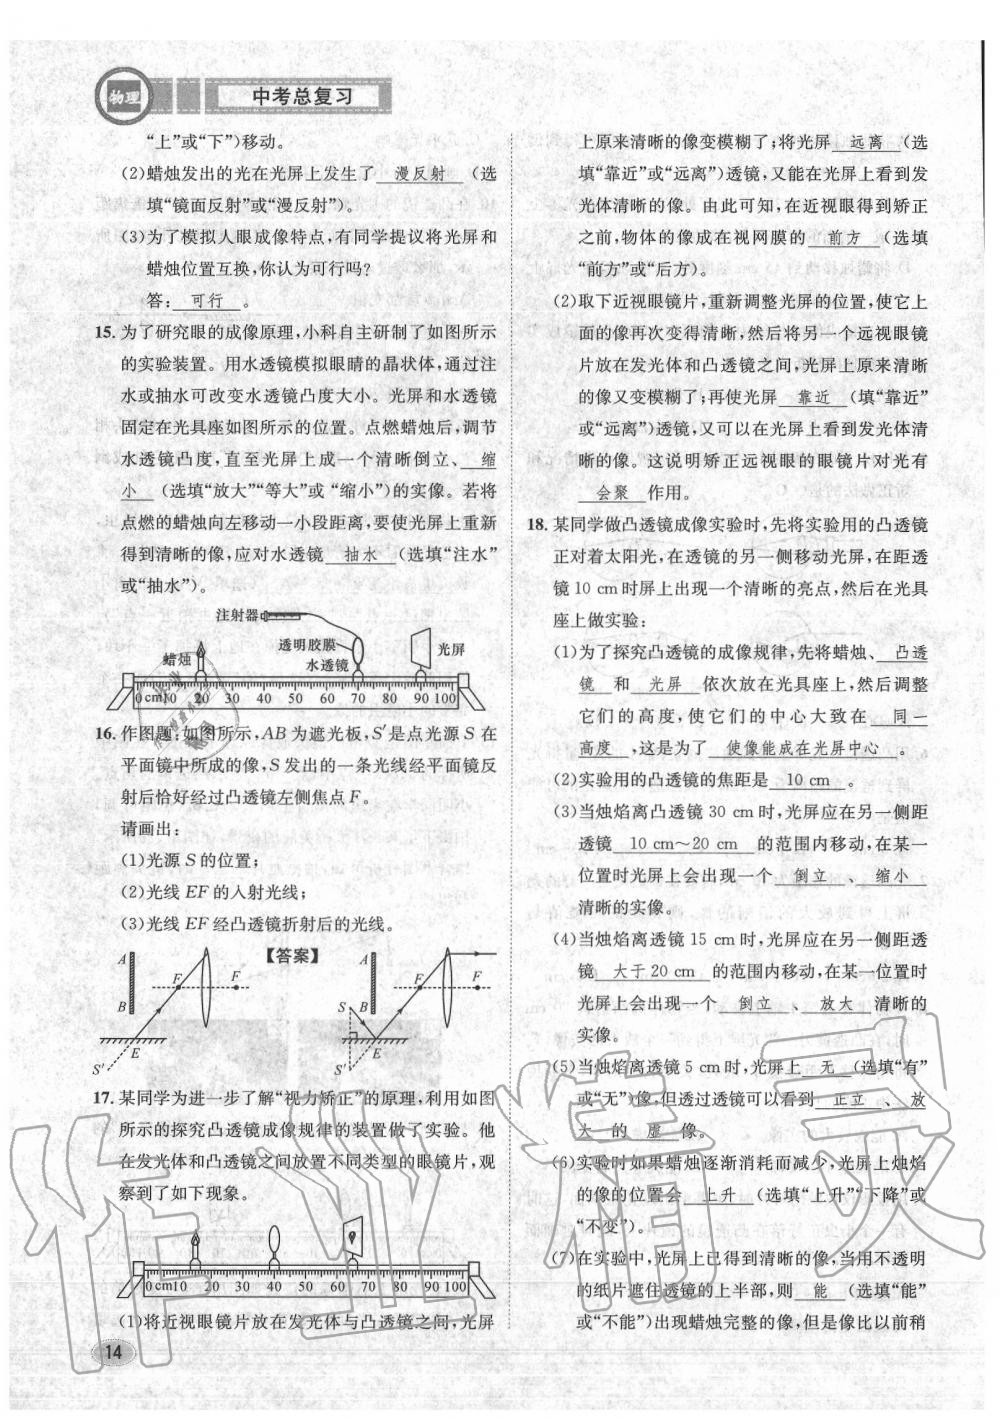 物理
中考总复习
“上”或“下”)移动。
(2)蜡烛发出的光在光屏上发生了 漫反射 (选
填“镜面反射”或“漫反射”)。
(3)为了模拟人眼成像特点,有同学提议将光屏和
蜡烛位置互换,你认为可行吗?
答: 可行 。
15. 为了研究眼的成像原理,小科自主研制了如图所示
的实验装置。用水透镜模拟眼睛的晶状体,通过注
水或抽水可改变水透镜凸度大小。光屏和水透镜
固定在光具座如图所示的位置。点燃蜡烛后,调节
水透镜凸度,直至光屏上成一个清晰倒立、 缩
小 (选填“放大”“等大”或 “缩小”)的实像。若将
点燃的蜡烛向左移动一小段距离,要使光屏上重新
得到清晰的像,应对水透镜 抽水 (选填“注水”
或“抽水”)。
注射器
蜡烛 透明胶膜 水透镜 光屏
0 cm10 20 30 40 50 60 70 80 90 100
16. 作图题:如图所示,AB 为遮光板,S′是点光源 S 在
平面镜中所成的像,S 发出的一条光线经平面镜反
射后恰好经过凸透镜左侧焦点 F。
请画出:
(1)光源 S 的位置;
(2)光线 EF 的入射光线;
(3)光线 EF 经凸透镜折射后的光线。
A B F F E S′
【答案】
A S B F F E S′
17. 某同学为进一步了解“视力矫正”的原理,利用如图
所示的探究凸透镜成像规律的装置做了实验。他
在发光体和凸透镜之间放置不同类型的眼镜片,观
察到了如下现象。
0 cm10 20 30 40 50 60 70 80 90 100
(1)将近视眼镜片放在发光体与凸透镜之间,光屏
14
上原来清晰的像变模糊了;将光屏 远离 (选
填“靠近”或“远离”)透镜,又能在光屏上看到发
光体清晰的像。由此可知,在近视眼得到矫正
之前,物体的像成在视网膜的 前方 (选填
“前方”或“后方)。
(2)取下近视眼镜片,重新调整光屏的位置,使它上
面的像再次变得清晰,然后将另一个远视眼镜
片放在发光体和凸透镜之间,光屏上原来清晰
的像又变模糊了;再使光屏 靠近 (填“靠近”
或“远离”)透镜,又可以在光屏上看到发光体清
晰的像。这说明矫正远视眼的眼镜片对光有
会聚 作用。
18. 某同学做凸透镜成像实验时,先将实验用的凸透镜
正对着太阳光,在透镜的另一侧移动光屏,在距透
镜 10 cm 时屏上出现一个清晰的亮点,然后在光具
座上做实验:
(1)为了探究凸透镜的成像规律,先将蜡烛、 凸透
镜 和 光屏 依次放在光具座上,然后调整
它们的高度,使它们的中心大致在 同一
高度 ,这是为了 使像能成在光屏中心 。
(2)实验用的凸透镜的焦距是 10 cm 。
(3)当烛焰离凸透镜 30 cm 时,光屏应在另一侧距
透镜 10 cm～20 cm 的范围内移动,在某一
位置时光屏上会出现一个 倒立 、 缩小
清晰的实像。
(4)当烛焰离透镜 15 cm 时,光屏应在另一侧距透
镜 大于20 cm 的范围内移动,在某一位置时
光屏上会出现一个 倒立 、 放大 清晰的
实像。
(5)当烛焰离透镜 5 cm 时,光屏上 无 (选填“有”
或“无”)像,但透过透镜可以看到 正立 、 放
大 的 虚 像。
(6)实验时如果蜡烛逐渐消耗而减少,光屏上烛焰
的像的位置会 上升 (选填“上升”“下降”或
“不变”)。
(7)在实验中,光屏上已得到清晰的像,当用不透明
的纸片遮住透镜的上半部,则 能 (选填“能”
或“不能”)出现蜡烛完整的像,但是像比以前稍
作业精灵